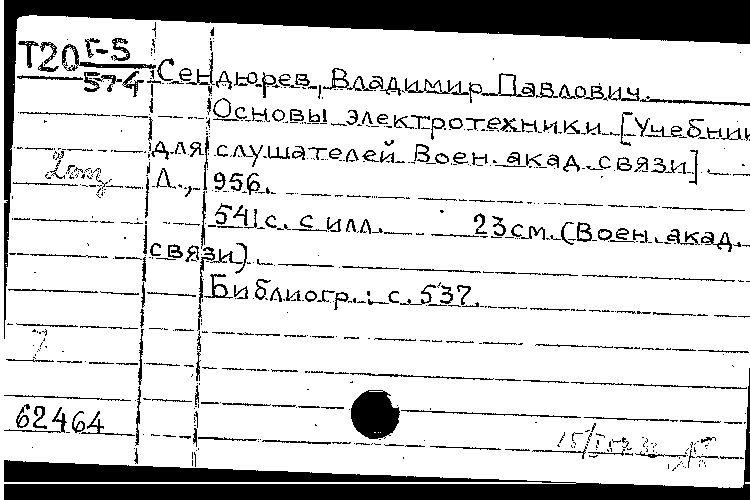 Т20 Г-5
57-4
Сендюрев, Владимир Павлович.
Основы электротехники [Учебник
для слушателей Воен. акад. связи].
Л., 956.
541 с. с илл. 23 см. (Воен. акад.
связи).
Библиогр.: с. 537.
62464